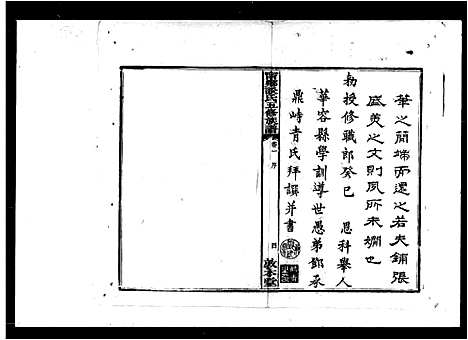 華之簡端而還之若夫鋪張
盛美之文則夙所未嫺也
勅授修職郎癸巳 恩科舉人
華容縣學訓導世愚弟鄧承
鼎峙青氏拜譔并書
氏五修族譜
卷一 序
四
敦本堂